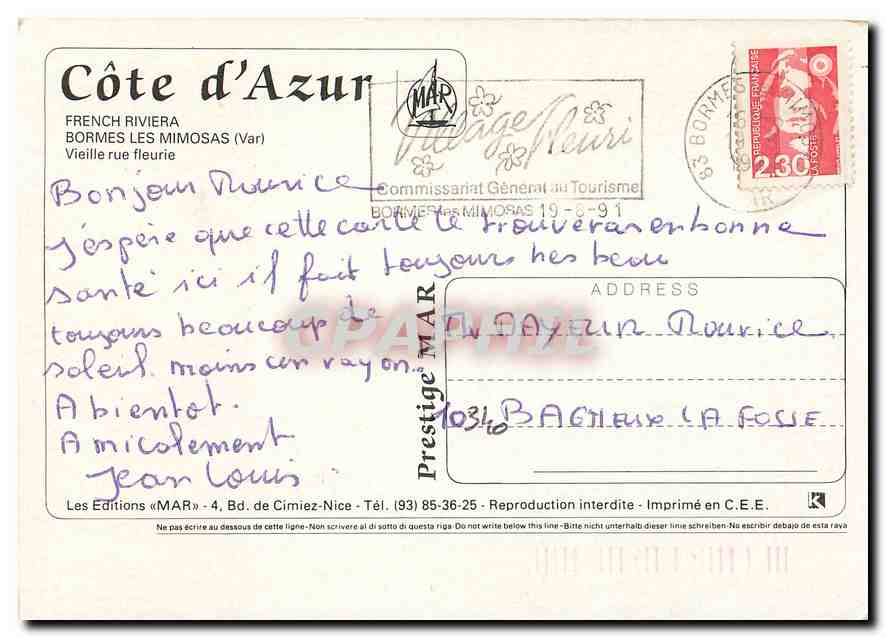 Côte d'Azur
FRENCH RIVIERA
BORMES LES MIMOSAS (Var)
Vieille rue fleurie
MAR
Village Fleuri
Commissariat Général au Tourisme
BORMES les MIMOSAS 19-8-91
83 BORMES
REPUBLIQUE FRANÇAISE
LA POSTE
2,30
Bonjour Maurice
j'espère que cette carte te trouveras en bonne
santé ici il fait toujours tres beau
toujours beaucoup de
soleil moins un rayon..
A bientot.
Amicalement
Jean Louis
Prestige MAR
ADDRESS
Mr PAYEUR Maurice
10340 BAGNEUX LA FOSSE
CPAPHIL
Les Editions «MAR» - 4, Bd. de Cimiez-Nice - Tél. (93) 85-36-25 - Reproduction interdite - Imprimé en C.E.E.
K
Ne pas écrire au dessous de cette ligne-Non scrivere al di sotto di questa riga-Do not write below this line-Bitte nicht unterhalb dieser linie schreiben-No escribir debajo de esta raya